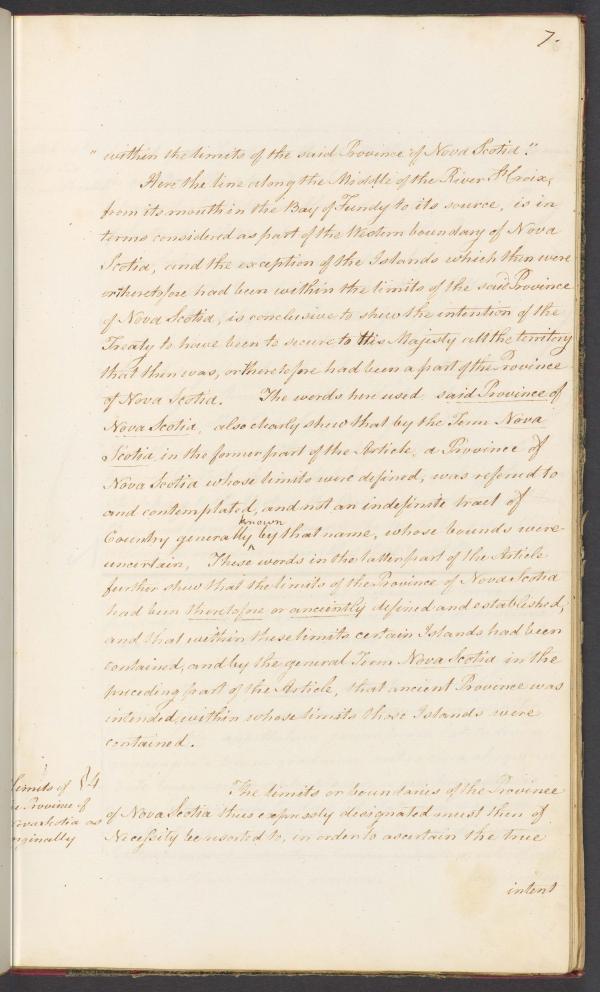 7.
" within the limits of the said Province of Nova Scotia."
Here the line along the Middle of the River St Croix,
from its mouth in the Bay of Fundy to its source, is in
terms considered as part of the Western boundary of Nova
Scotia, and the exception of the Islands which then were
or theretofore had been within the limits of the said Province
of Nova Scotia, is conclusive to shew the intention of the
Treaty to have been to secure to His Majesty all the territory
that then was, or theretofore had been a part of the Province
of Nova Scotia. The words here used said Province of
Nova Scotia, also clearly shew that by the Term Nova
Scotia in the former part of the Article, a Province of
Nova Scotia whose limits were defined, was referred to
and contemplated, and not an indefinite tract of
known
Country generally by that name, whose bounds were
uncertain, These words in the latter part of the Article
further shew that the limits of the Province of Nova Scotia
had been theretofore or anciently defined and established,
and that within these limits certain Islands had been
contained, and by the general Term Nova Scotia in the
preceding part of the Article, that ancient Province was
intended within whose limits those Islands were
contained.
limits of §4
Province of
Nova Scotia as
originally
The limits or boundaries of the Province
of Nova Scotia thus expressly designated must then of
Necessity be resorted to, in order to ascertain the true
intent